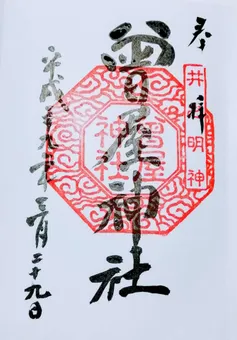 奉拝
井明神
曽屋神社
曽屋神社
平成二十九年三月二十九日